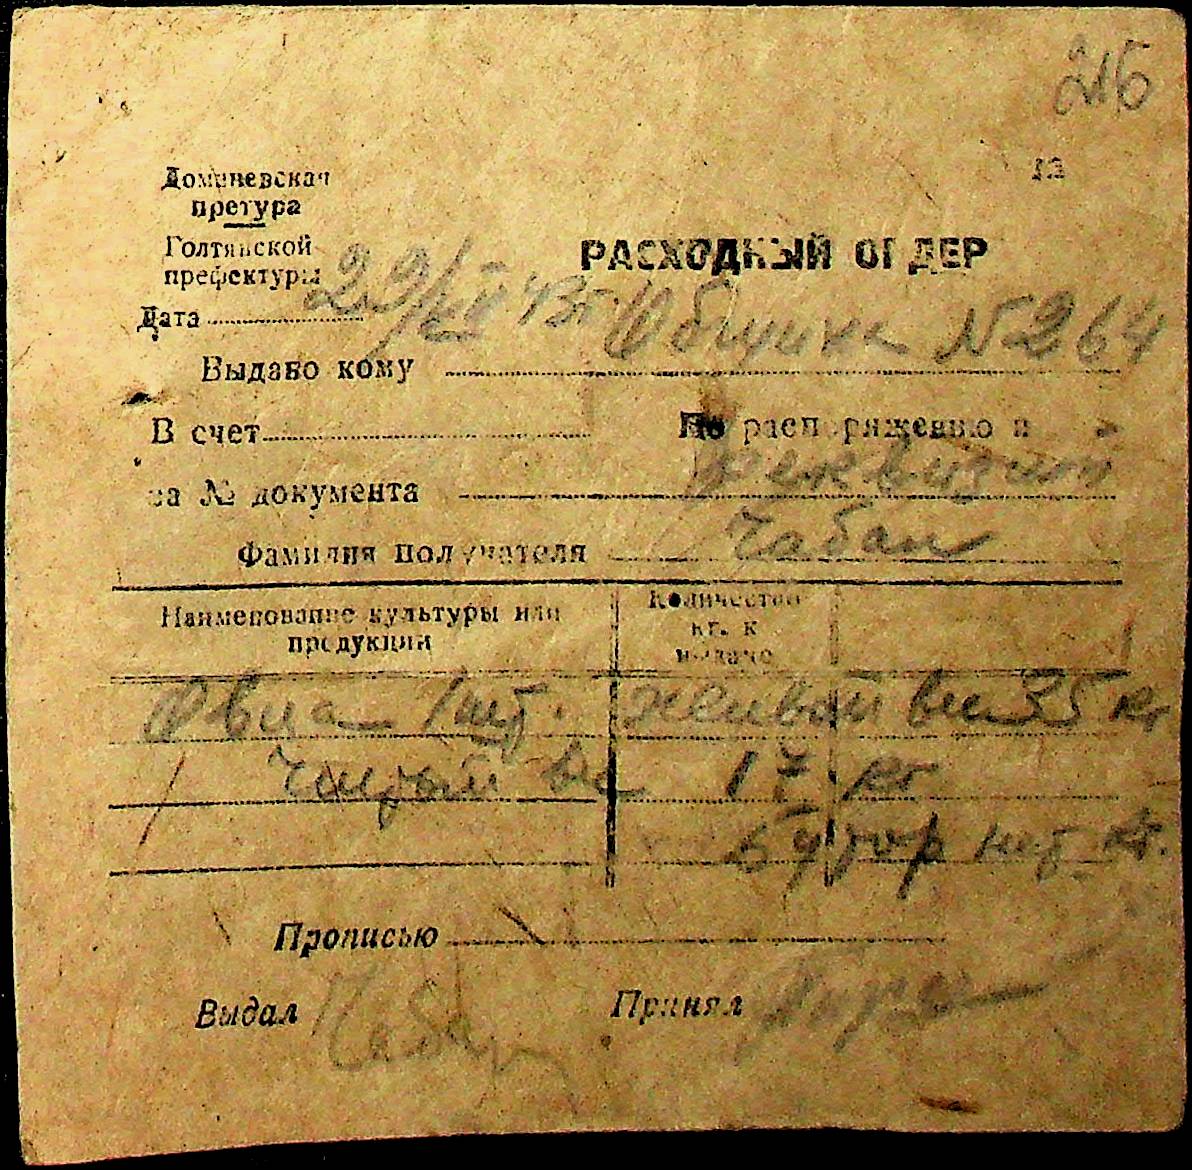 216
Доманевская
претура
Голтянской
префектуры
РАСХОДНЫЙ ОРДЕР
Дата 29/XII 43г. Община № 264
Выдано кому
В счет По распоряжению и
за № документа реквизит
Фамилия получателя Чабан
Наименование культуры или продукции
Количество кг. к выдаче
Овца 1 шт. живой вес 35 кг
Чистый вес 17 кг
Прописью
Выдал Чабан Принял